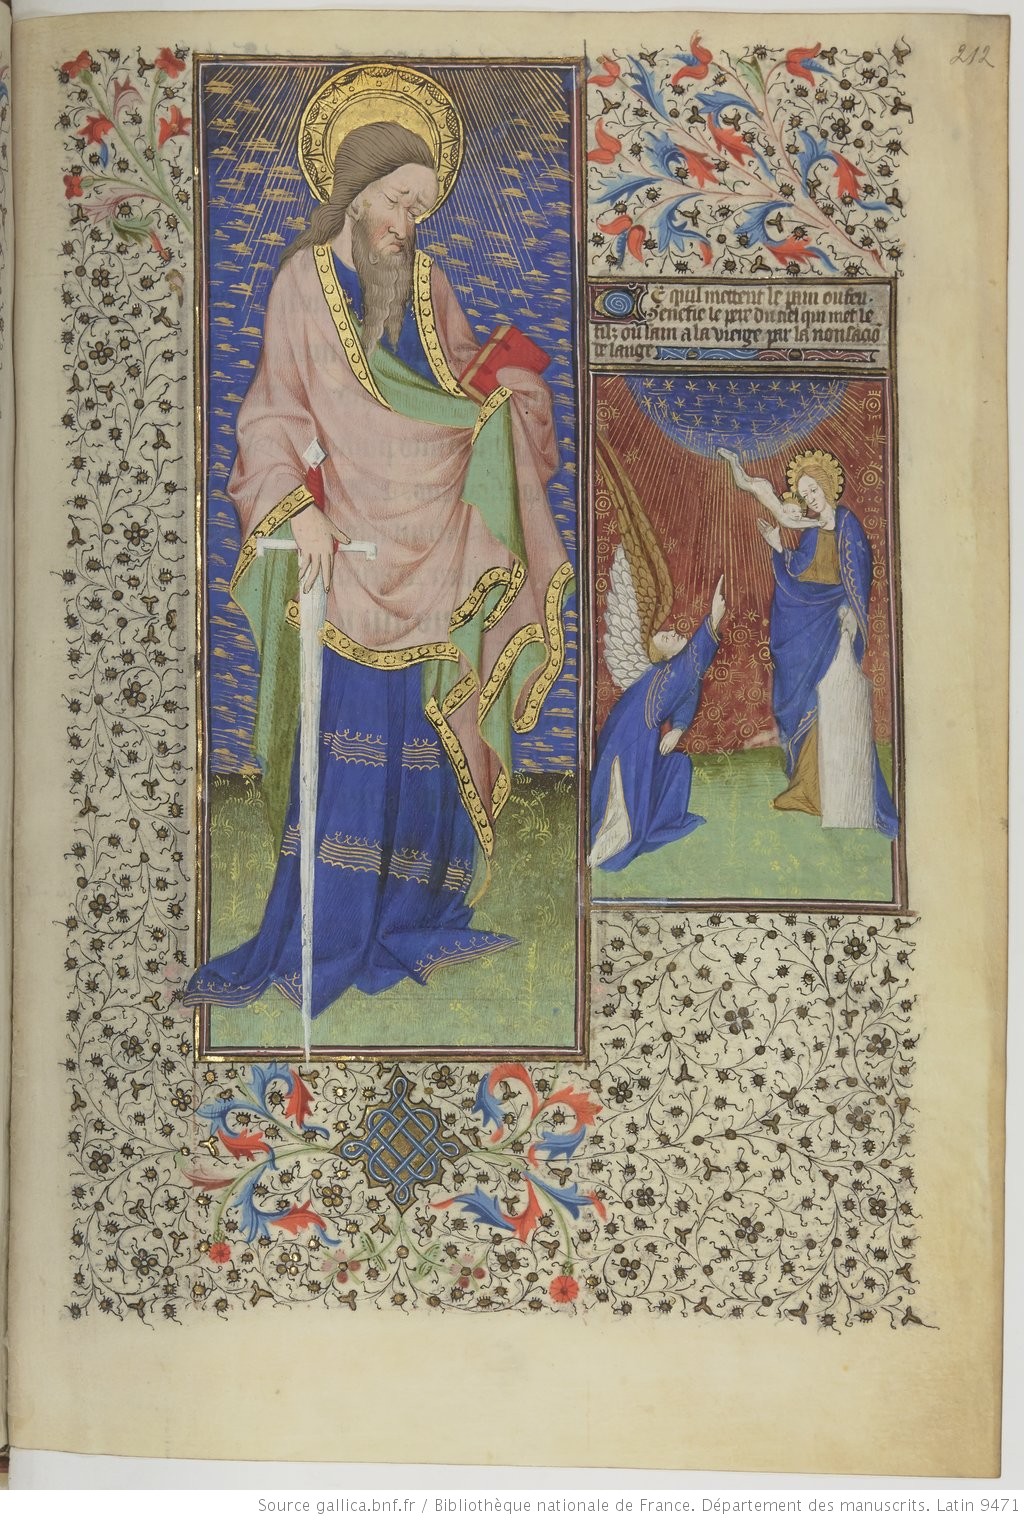 212
Ce quil mettent le pain ou feu.
Senefie le pere du ciel qui met le
filz ou sain a la vierge par la nonsacio
de lange
Source gallica.bnf.fr / Bibliothèque nationale de France. Département des manuscrits. Latin 9471